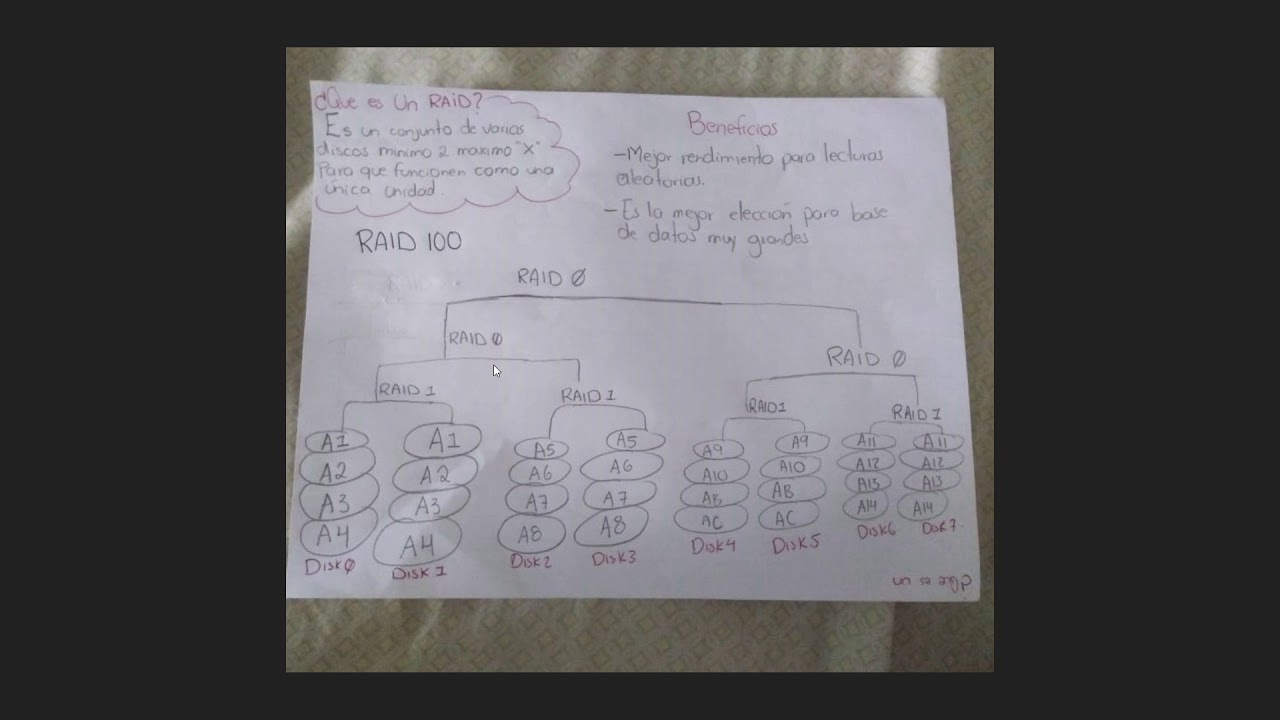 ¿Que es Un RAID?
Es un conjunto de varios
discos minimo 2 maximo "X"
Para que funcionen como una
única unidad.
Beneficios
-Mejor rendimiento para lecturas
aleatorias.
-Es la mejor elección para base
de datos muy grandes
RAID 100
RAID 0
RAID 0
RAID 0
RAID 1
RAID 1
RAID1
RAID 1
A1 A1 A5 A5 A9 A9 A11 A11
A2 A2 A6 A6 A10 A10 A12 A12
A3 A3 A7 A7 AB AB A13 A13
A4 A4 A8 A8 AC AC A14 A14
Disk0 Disk 1 Disk2 Disk3 Disk4 Disk5 Disk6 Disk7.
¿Que es un